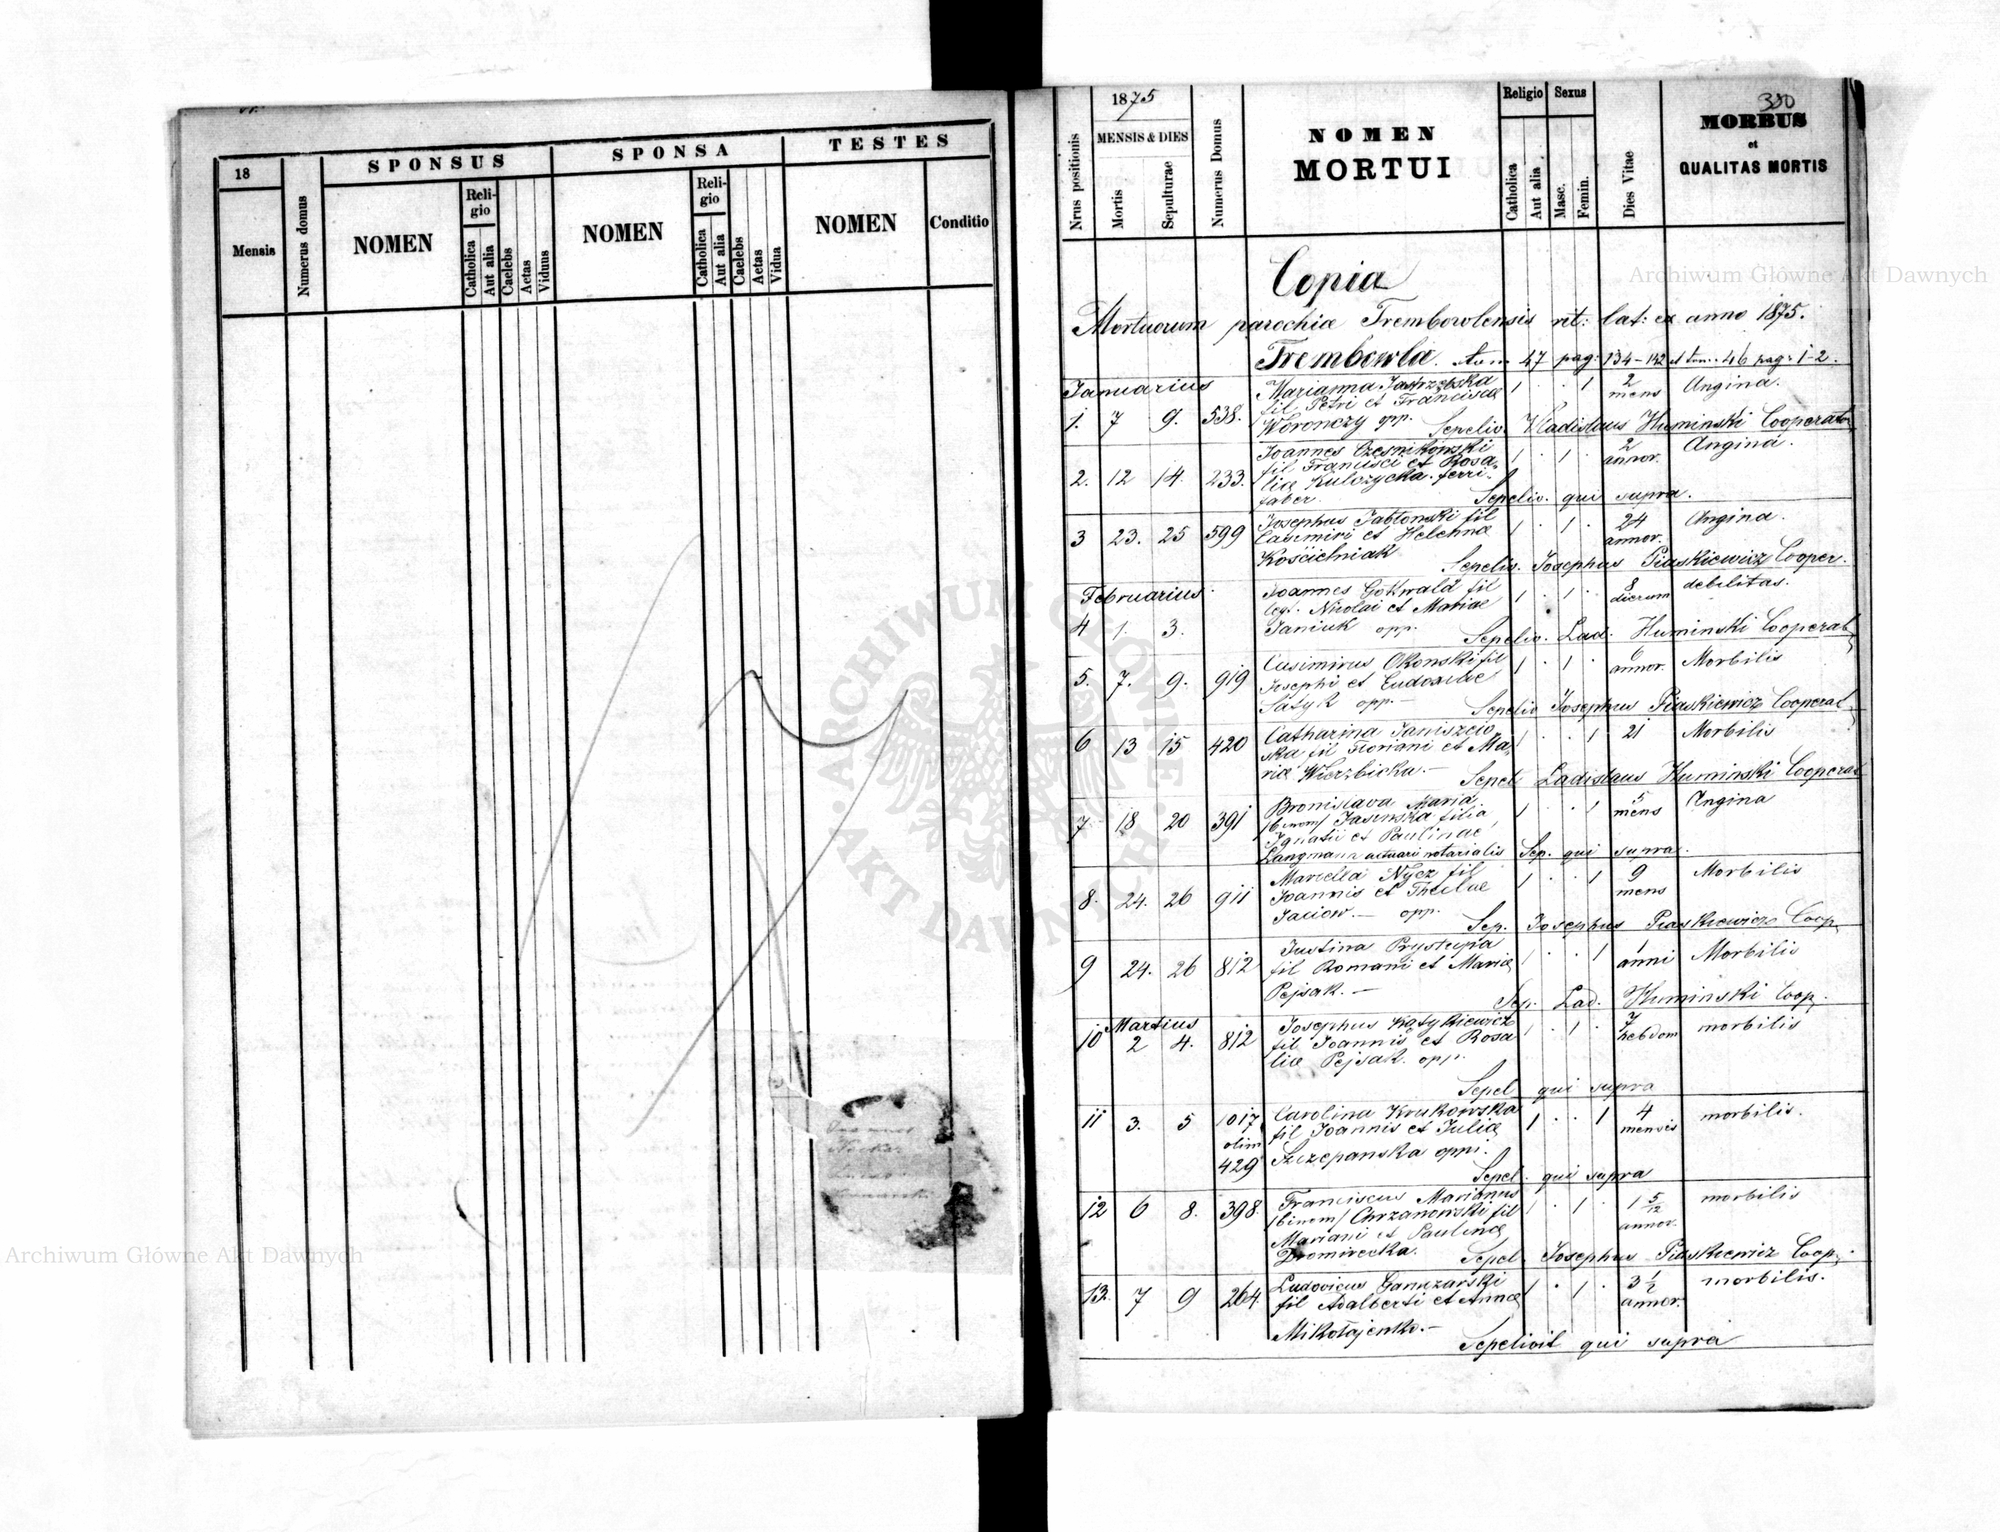 18
SPONSUS
SPONSA
TESTES
Mensis
Numerus domus
NOMEN
Religio
Catholica
Aut alia
Caelebs
Aetas
Viduus
NOMEN
Religio
Catholica
Aut alia
Caelebs
Aetas
Vidua
NOMEN
Conditio
380
Nrus positionis
1875
MENSIS & DIES
Mortis
Sepulturae
Numerus Domus
NOMEN
MORTUI
Religio
Catholica
Aut alia
Sexus
Masc.
Femin.
Dies Vitae
MORBUS
et
QUALITAS MORTIS
Copia
Mortuorum parochiæ Trembowlensis rit: lat: ex anno 1875.
Trembowla. tom 47 pag: 134-142 et tom. 46 pag: 1-2.
Januarius
1. 7 9. 538. Marianna Jastrzębska 1 · · 1 2 mens Angina.
fil Petri et Franciscæ
Woronczy opp. Sepeliv. Vladislaus Huminski Cooperator
2. 12 14. 233. Joannes Cześnikowski 1 · 1 · 2 annor. Angina.
fil Francisci et Rosa-
liæ Kulczycka. ferri-
faber. Sepeliv. qui supra.
3 23. 25 599 Josephus Jabłonski fil 1 · 1 · 24 annor. Angina.
Casimiri et Helenæ
Kościelniak Sepeliv. Josephus Piaskiewicz Cooper.
Februarius.
4 1. 3. Joannes Gottwald fil 1 · 1 · 8 dierum debilitas.
leg. Nicolai et Mariae
Janiuk opp. Sepeliv. Lad. Huminski Cooperat
5. 7. 9. 919 Casimirus Okonski fil 1 · 1 · 6 annor. Morbilis
Josephi et Eudoxiae
Satyk opp. Sepeliv Josephus Piaskiewicz Cooperat
6 13 15 420 Catharina Janiszew- 1 · · 1 21 Morbilis
ska fil Floriani et Ma-
ria Wierzbicka. Sepel Ladislaus Huminski Cooperat
7 18 20 391 Bronislava Maria 1 · · 1 5 mens Angina
/binom/ Jasinska filia
Ignatii et Paulinae
Langmann actuari notarialis Sep. qui supra.
8. 24. 26 911 Mariella Nycz fil 1 · · 1 9 mens Morbilis
Joannis et Theclae
Jaciow. opp. Sep. Josephus Piaskiewicz Coop.
9 24. 26 812 Justina Prystupa 1 · · 1 1 anni Morbilis
fil Romani et Mariæ
Pejsak. Sep. Lad. Huminski Coop.
Martius
10 2 4. 812 Josephus Kątykiewicz 1 · 1 · 7 hebdom morbilis
fil Joannis et Rosa
liæ Pejsak. opp.
Sepel qui supra
11 3. 5 1017 olim 429 Carolina Krukowska 1 · · 1 4 mensis morbilis.
fil Joannis et Juliæ
Szczepanska oppi.
Sepel. qui supra
12 6 8. 398. Franciscus Marianus 1 · 1 · 1 5/12 annor. morbilis
/binom/ Chrzanowski fil
Mariani et Paulinæ
Dromirecka. Sepel Josephus Piaskiewicz Coop.
13. 7 9 264. Ludovicus Ganczarski 1 · 1 · 3 1/2 annor. morbilis.
fil Adalberti et Annæ
Mikołajenko.
Sepelivit qui supra
ARCHIWUM GŁÓWNE AKT DAWNYCH
Archiwum Główne Akt Dawnych
Archiwum Główne Akt Dawnych